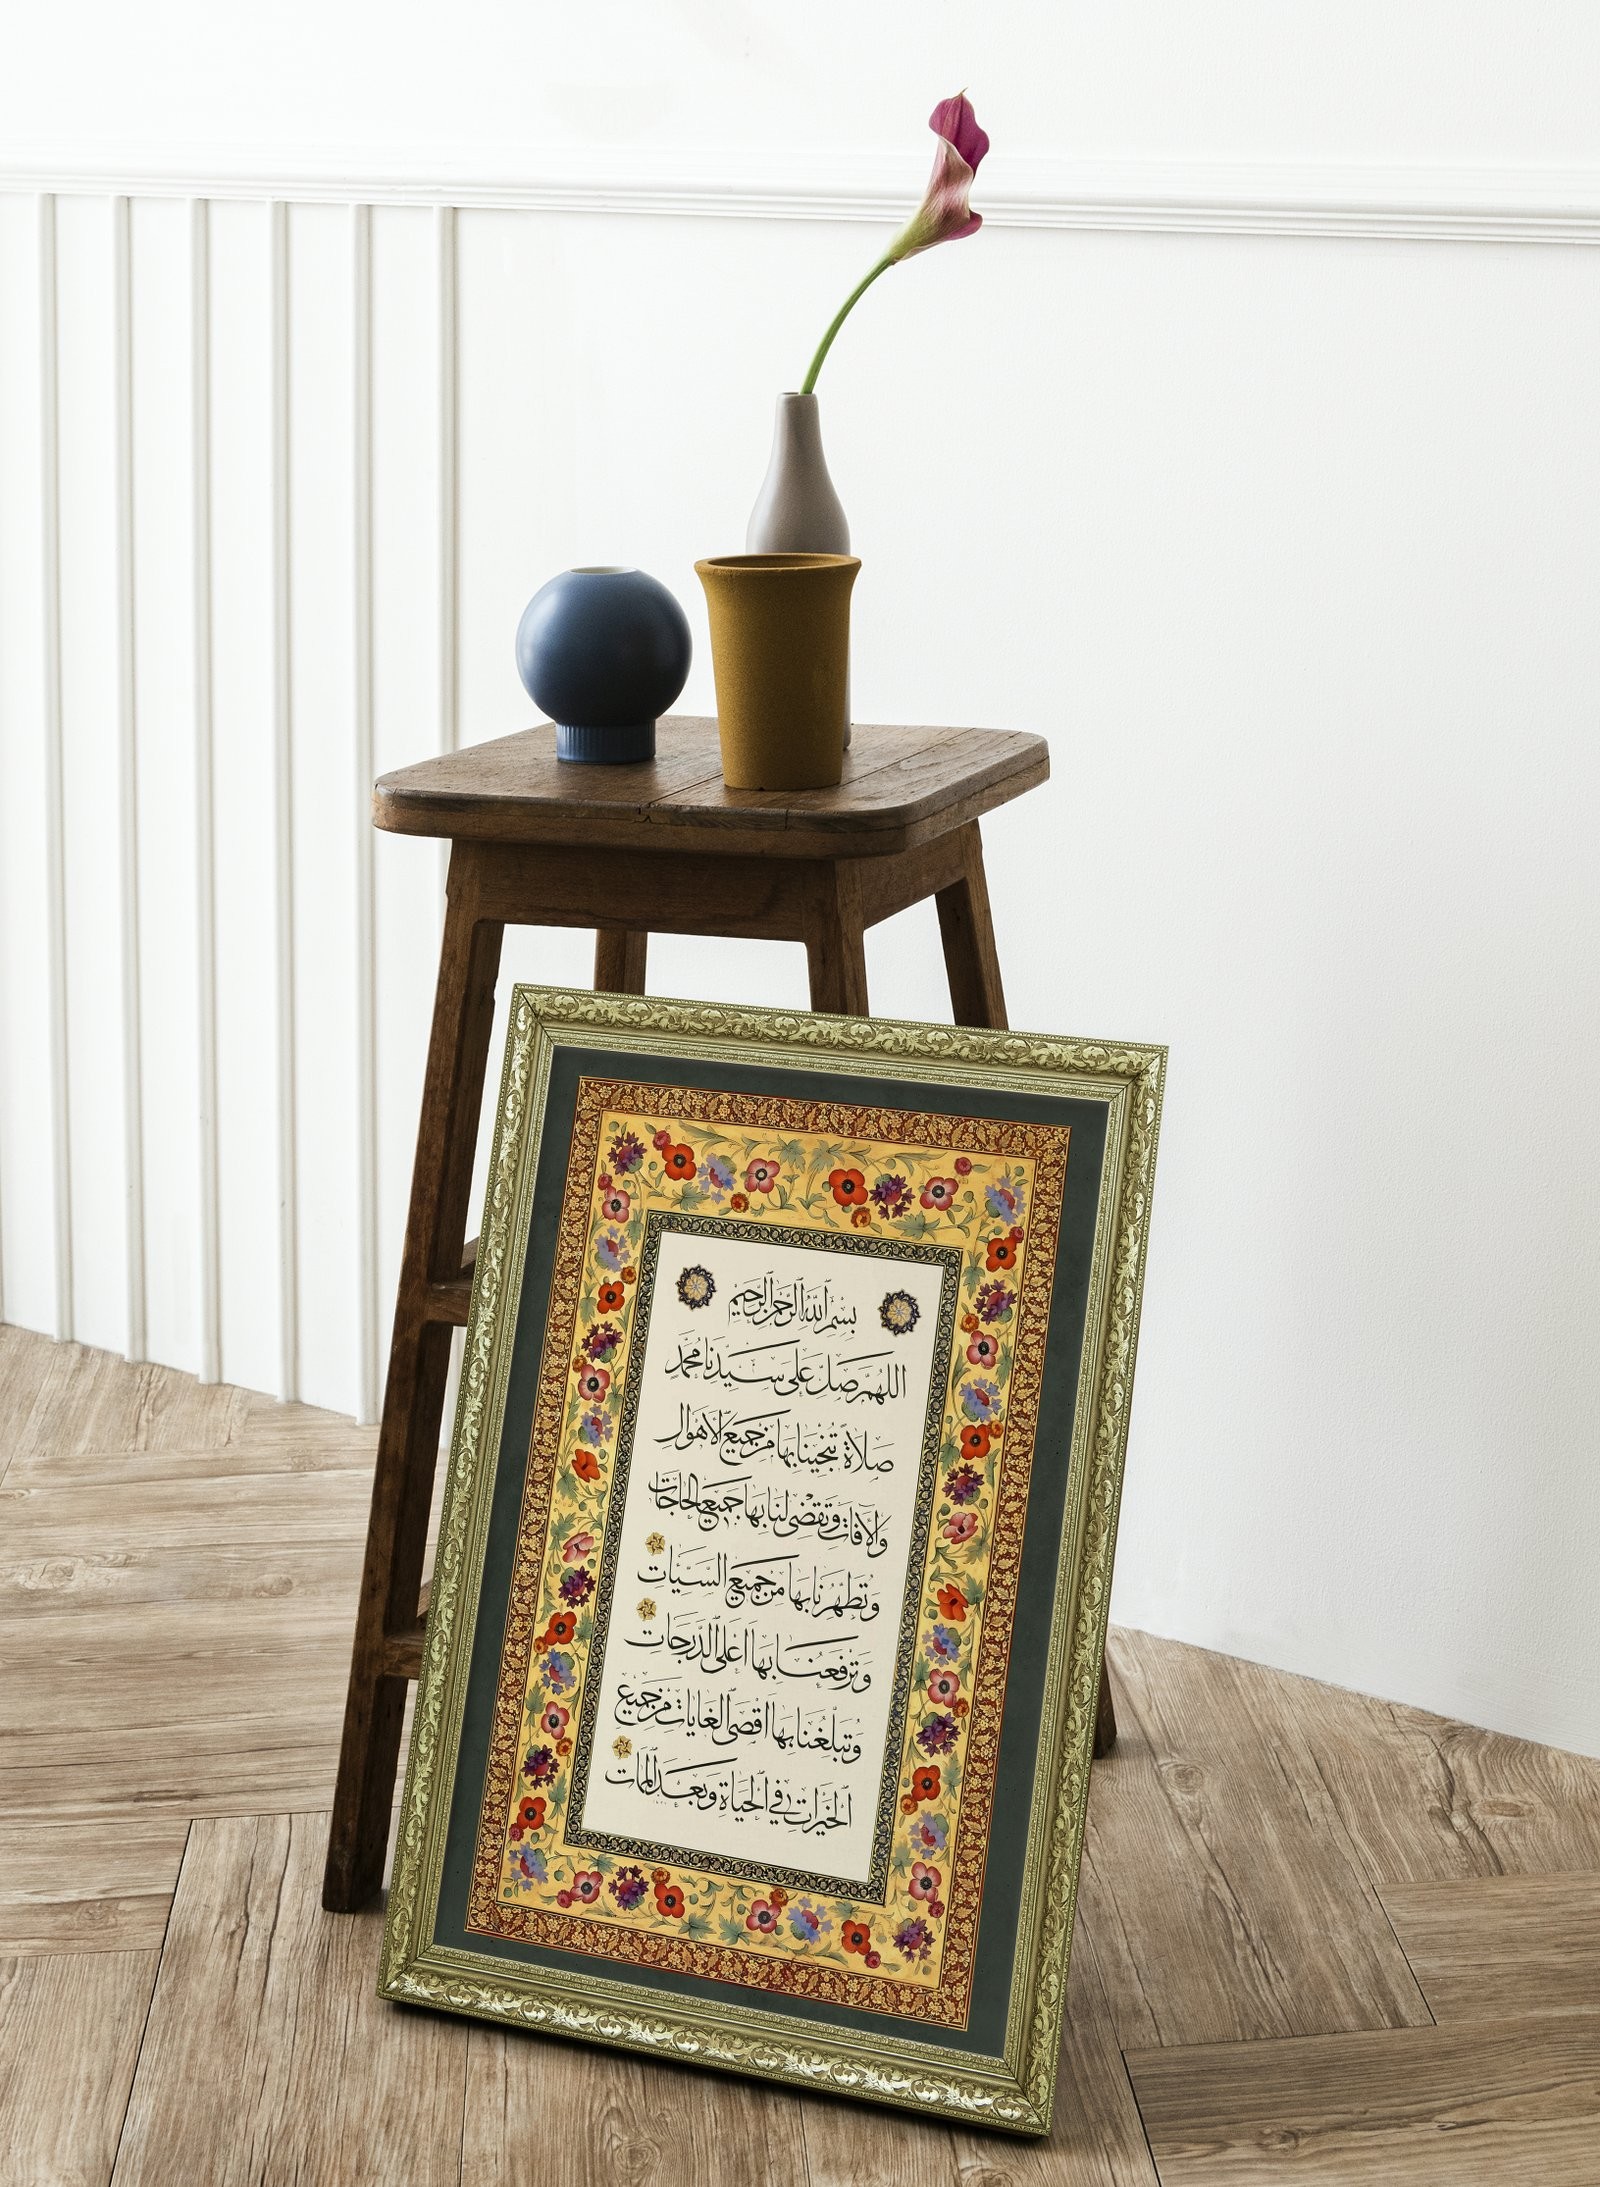 بِسْمِ ٱللَّهِ ٱلرَّحْمٰنِ ٱلرَّحِيمِ
اللهُمَّ صَلِّ عَلٰى سَيِّدِنَا مُحَمَّدٍ
صَلَاةً تُنْجِينَا بِهَا مِنْ جَمِيعِ ٱلْأَهْوَالِ
وَٱلْآفَاتِ وَتَقْضِى لَنَا بِهَا جَمِيعَ ٱلْحَاجَاتِ
وَتُطَهِّرُنَا بِهَا مِنْ جَمِيعِ ٱلسَّيِّئَاتِ
وَتَرْفَعُنَا بِهَا اَعْلَى ٱلدَّرَجَاتِ
وَتُبَلِّغُنَا بِهَا اَقْصَى ٱلْغَايَاتِ مِنْ جَمِيعِ
ٱلْخَيْرَاتِ فِي ٱلْحَيَاةِ وَبَعْدَ ٱلْمَمَاتِ